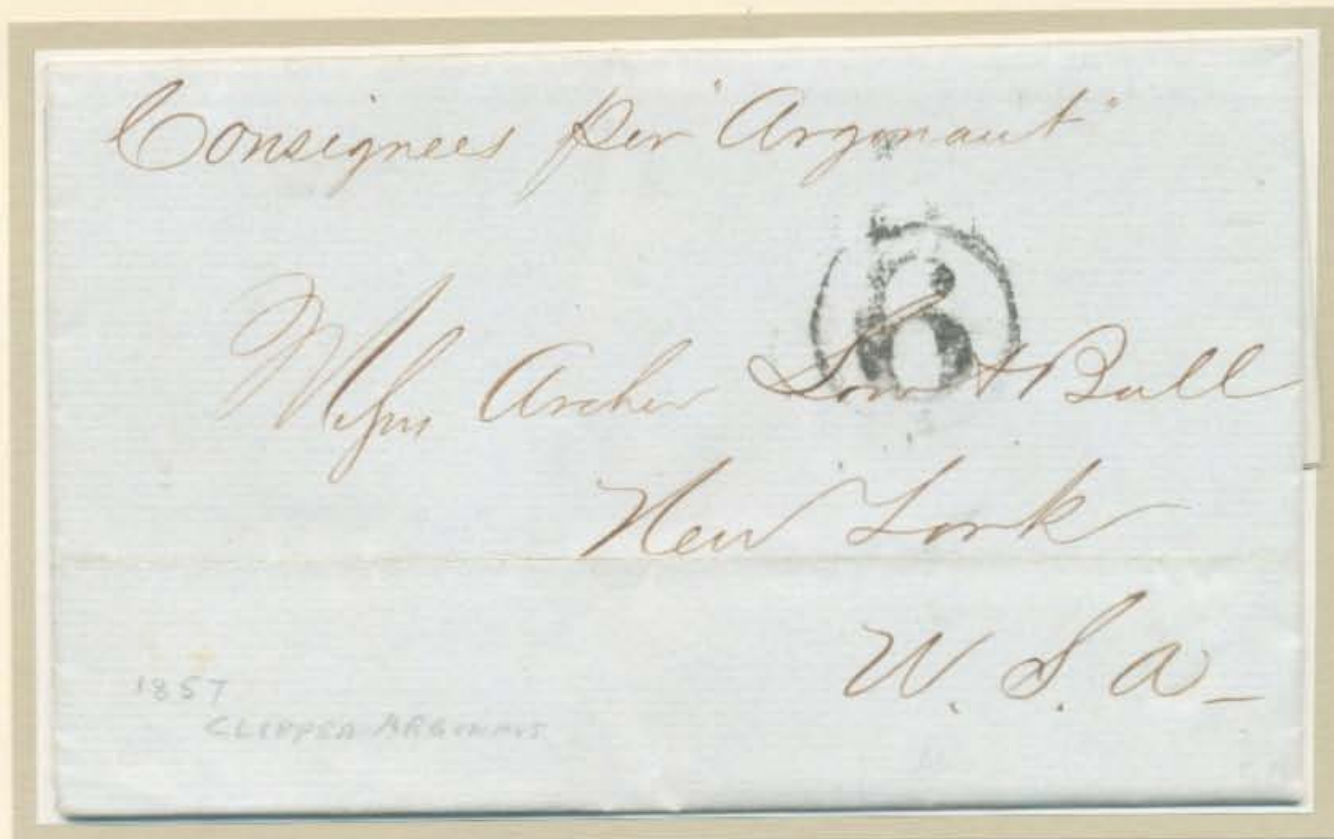 Consignees per "Argonaut"
6
Messrs Archer Low & Ball
New York
U. S. A -
1857
CLIPPER ARGONAUT